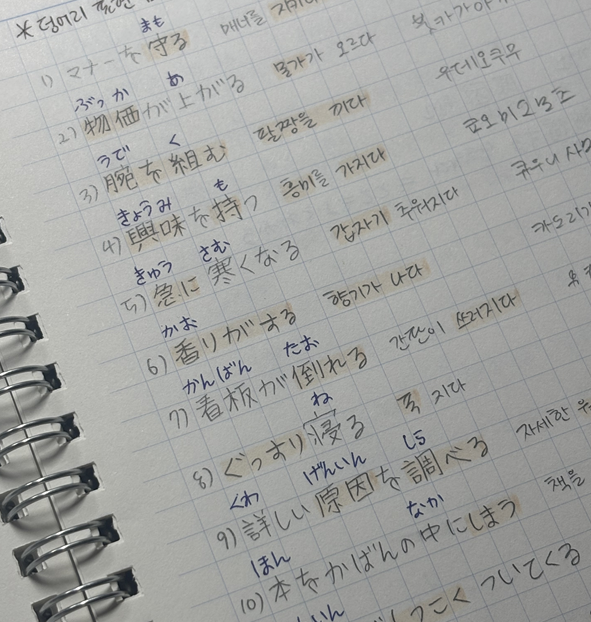 * 덩어리 표현
まも
1) マナーを守る 매너를 지키다
ぶっか あ
2) 物価が上がる 물가가 오르다 붓카가아
うで く
3) 腕を組む 팔짱을 끼다 우데오쿠무
きょうみ も
4) 興味を持つ 흥미를 가지다 쿄오미오모츠
きゅう さむ
5) 急に寒くなる 갑자기 추워지다 큐우니 사무
かお
6) 香りがする 향기가 나다 카오리가
かんばん たお
7) 看板が倒れる 간판이 쓰러지다
ね
8) ぐっすり寝る 푹 자다
くわ げんいん しら
9) 詳しい原因を調べる 자세한
ほん なか
10) 本をかばんの中にしまう 책을
しつこくついてくる